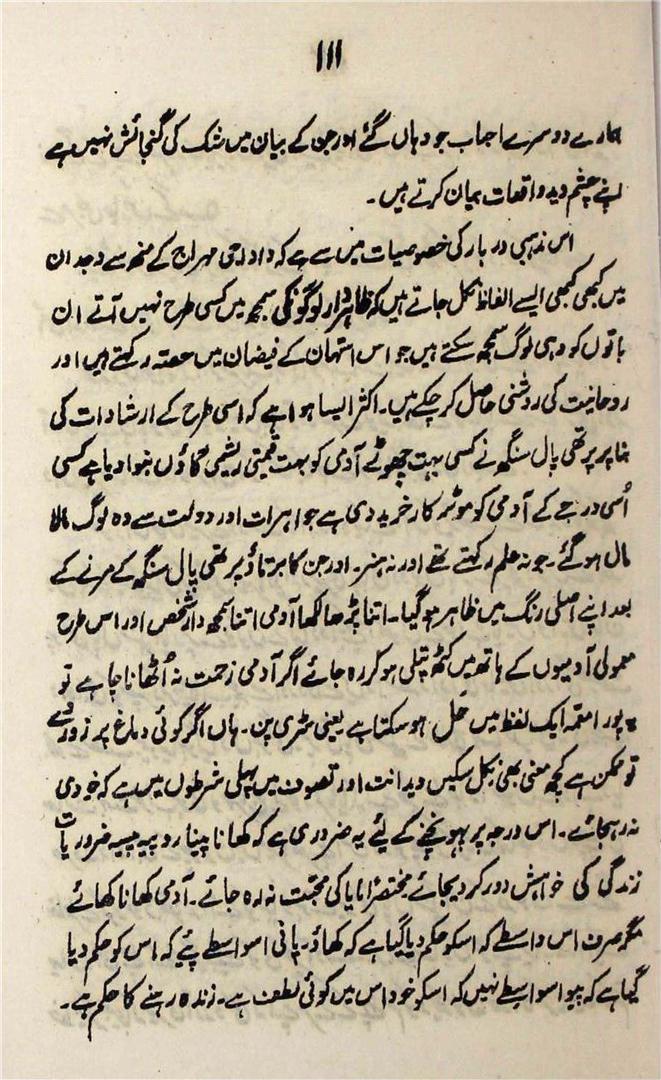 ۱۱۱
ہمارے دوسرے احباب جو وہاں گئے اور جن کے بیان میں شک کی گنجائش نہیں ہے
اپنے چشم دید واقعات بیان کرتے ہیں۔
اس مذہبی دربار کی خصوصیات میں سے ہے کہ داداجی مہراج کے منھ سے وجدان
میں کبھی کبھی ایسے الفاظ نکل جاتے ہیں کہ ظاہردار لوگوں کی سمجھ میں کسی طرح نہیں آتے ان
باتوں کو وہی لوگ سمجھ سکتے ہیں جو اس استھان کے فیضان میں حصہ رکھتے ہیں اور
روحانیت کی روشنی حاصل کر چکے ہیں۔ اکثر ایسا ہوا ہے کہ اسی طرح کے ارشادات کی
بنا پر پرتھی پال سنگھ نے کسی بہت چھوٹے آدمی کو بہت قیمتی ریشمی گاؤن بنوا دیا ہے کسی
اُسی درجے کے آدمی کو موٹر کار خرید دی ہے جواہرات اور دولت سے وہ لوگ مالا
مال ہو گئے۔ جو نہ علم رکھتے تھے اور نہ ہنر۔ اور جن کا برتاؤ پرتھی پال سنگھ کے مرنے کے
بعد اپنے اصلی رنگ میں ظاہر ہو گیا۔ اتنا پڑھا لکھا آدمی اتنا سمجھ دار شخص اور اس طرح
معمولی آدمیوں کے ہاتھ میں کٹھ پتلی ہو کر رہ جائے اگر آدمی زحمت نہ اُٹھانا چاہے تو
پورا معمّہ ایک لفظ میں حل ہو سکتا ہے یعنی سٹری پن۔ ہاں اگر کوئی دماغ پر زور دے
تو ممکن ہے کچھ معنی بھی نکل سکیں ویدانت اور تصوف میں پہلی شرطوں میں ہے کہ خودی
نہ رہجائے۔ اس درجہ پر پہونچنے کے لئے یہ ضروری ہے کہ کھانا پینا روپیہ پیسہ ضروریات
زندگی کی خواہش دور کر دیجائے مختصراً مایا کی محبت نہ رہ جائے۔ آدمی کھانا کھائے
مگر صرف اس واسطے کہ اسکو حکم دیا گیا ہے کہ کھاؤ۔ پانی اسواسطے پئے کہ اس کو حکم دیا
گیا ہے کہ پیو اسواسطے نہیں کہ اسکو خود اس میں کوئی لطف ہے۔ زندہ رہنے کا حکم ہے۔